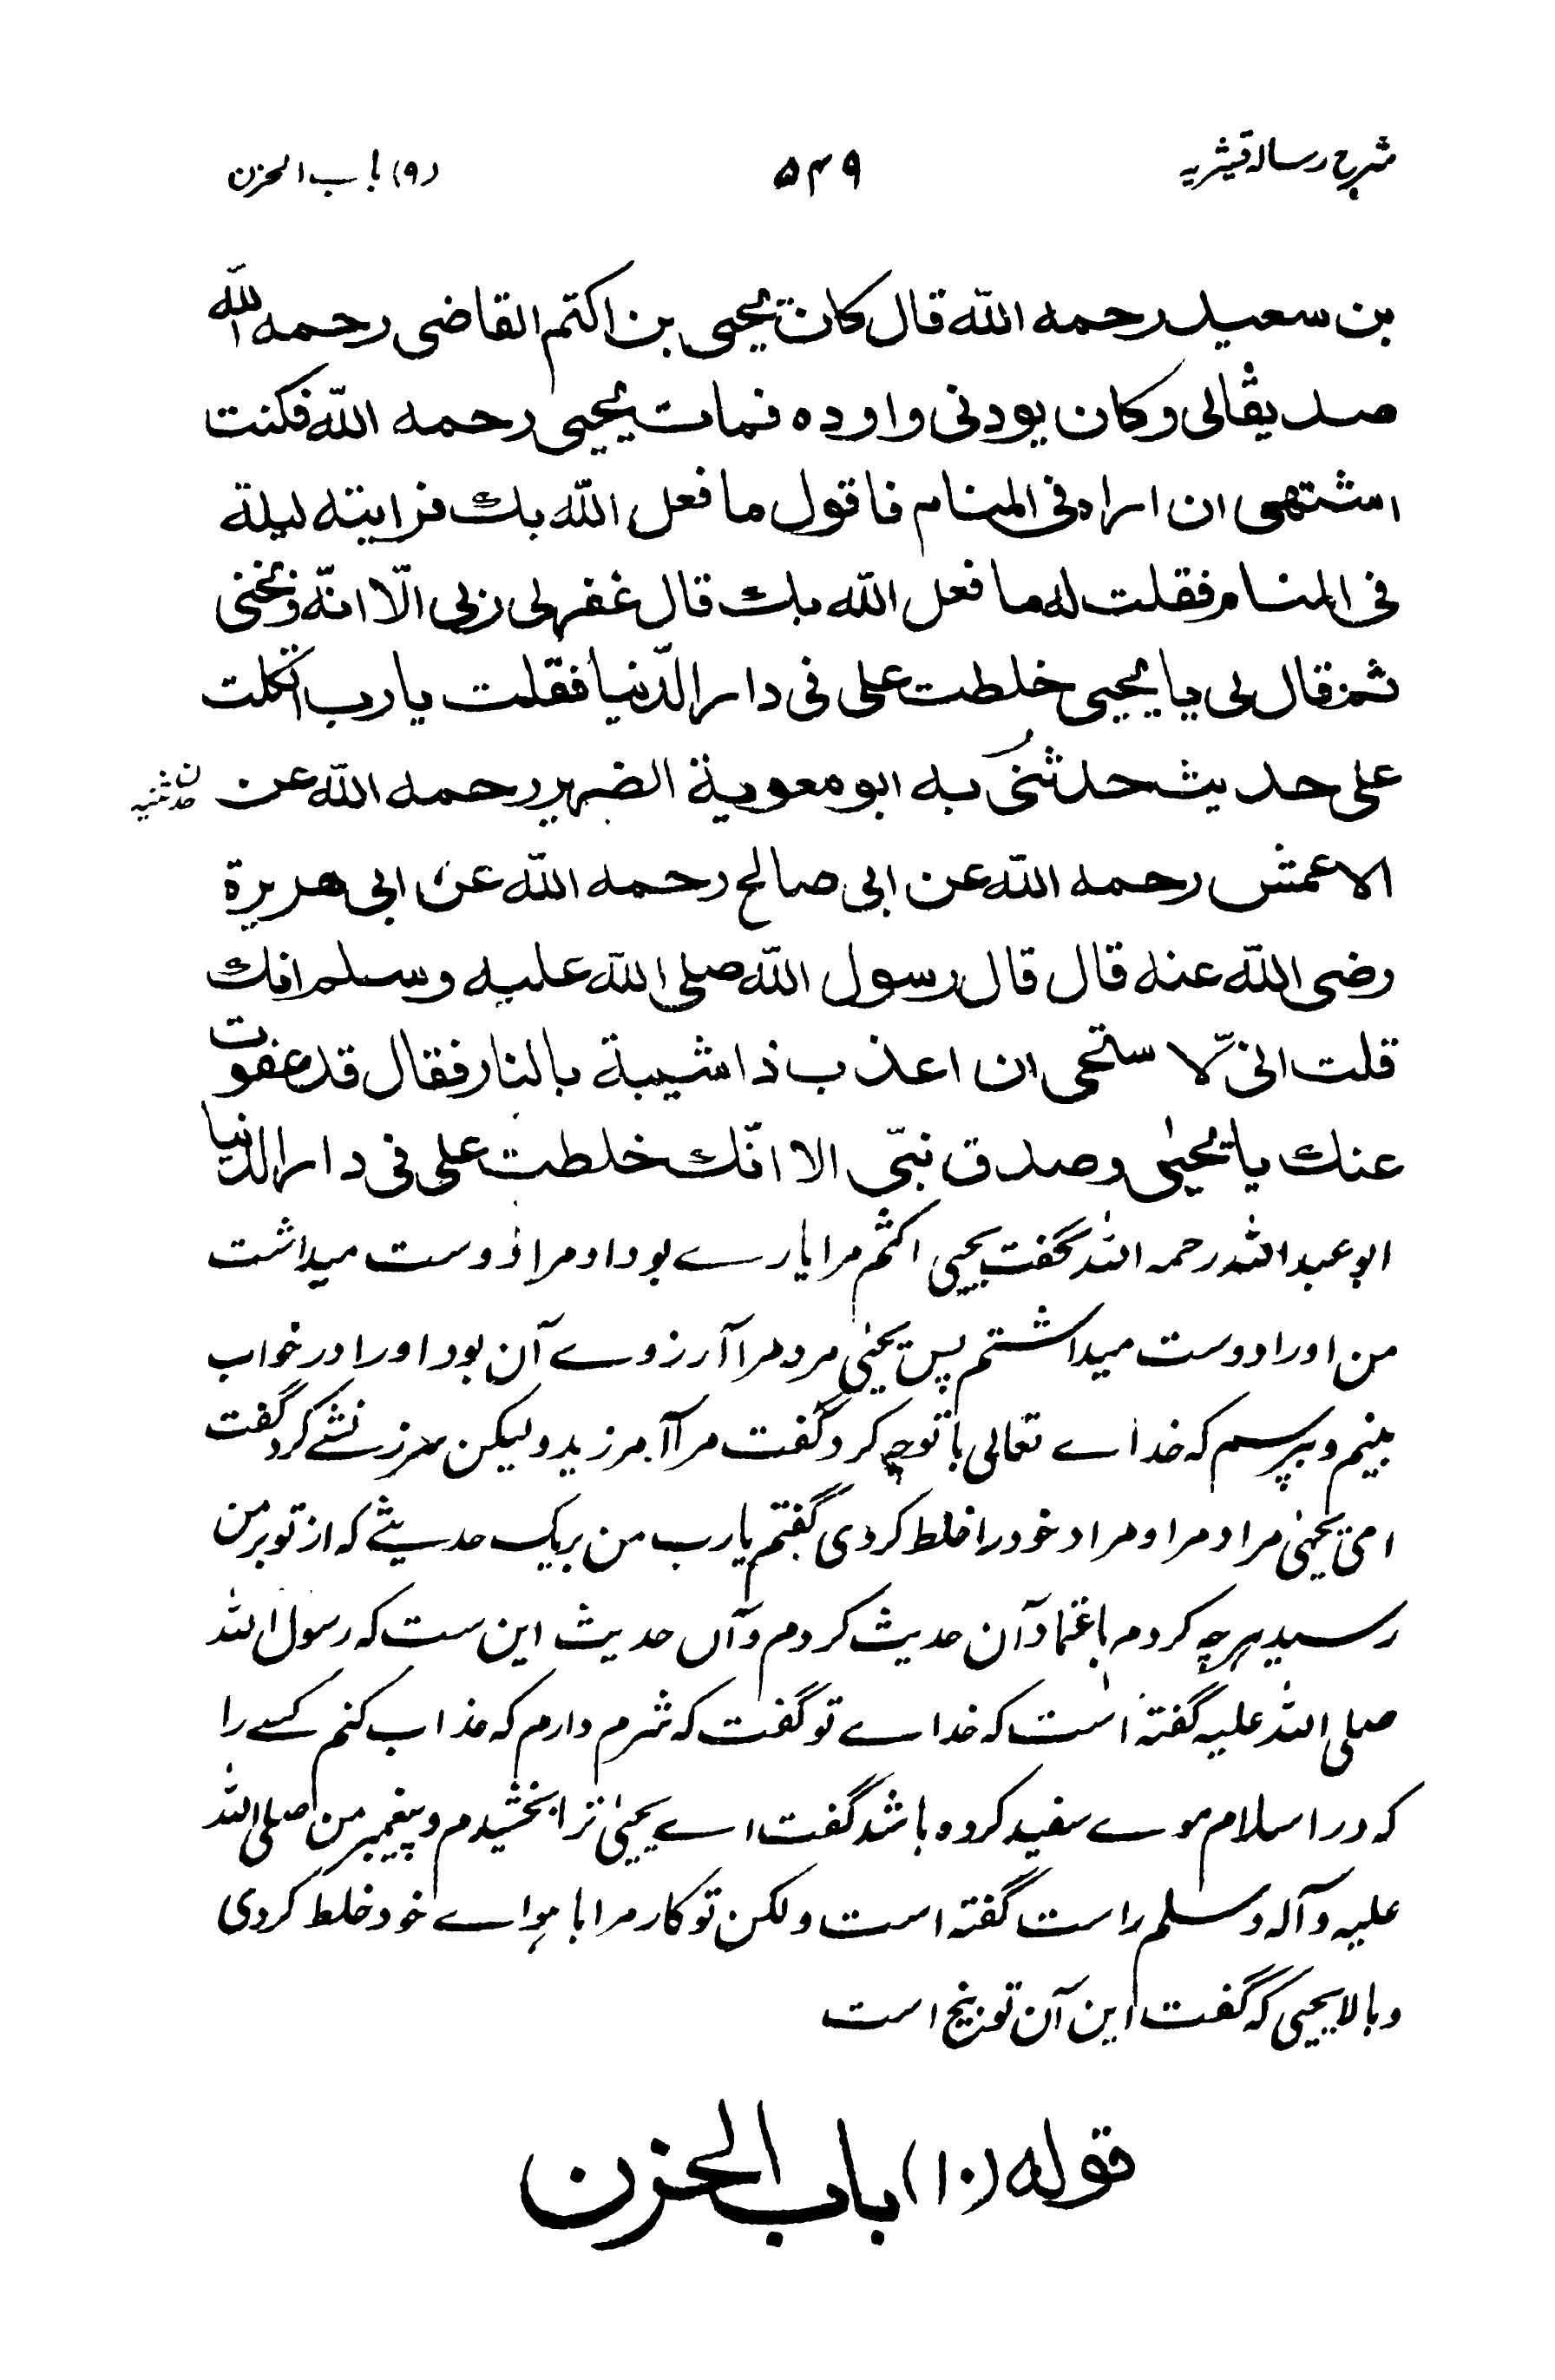 شرح رسالہ قیشریہ ۵۴۹ (۹) باب الحزن
بن سعید رحمه الله قال کان یحیی بن اکتم القاضی رحمه الله
صدیقالی وکان یودنی واوده فمات یحیی رحمه الله فکنت
اشتهی ان اراه فی المنام فاقول ما فعل الله بك فرایته لیلة
فی المنام فقلت له ما فعل الله بك قال غفرلی ربی الّا انّه وبخنی
ثم قال لی یا یحیی خلطت علی فی دار الدّنیا فقلت یا رب اتکلت
علی حدیث حدثنی به ابو معویة الضریر رحمه الله عن
ن حدثنیه
الاعمش رحمه الله عن ابی صالح رحمه الله عن ابی هریرة
رضی الله عنه قال قال رسول الله صلی الله علیه وسلم انك
قلت انی لّا ستحی ان اعذب ذا شیبة بالنار فقال قد عفوت
عنك یا یحیٰی وصدق نبیّ الا انّك خلطت علی فی دار الدنیا
ابو عبد اللہ رحمہ اللہ گفت یحیی اکثم مرا یارے بود او مرا دوست میداشت
من اورا دوست میداشتم پس یحیٰی مرد مرا آرزوے آن بود اورا در خواب
بینم و بپرسم کہ خداے تعالی با تو چہ کرد گفت مرا آمرزید ولیکن سرزنشے کرد گفت
امی یحیٰی مراد مرا و مراد خود را خلط کردی گفتم یا رب من بر یک حدیثے کہ از تو بر من
رسید ہرچہ کردم باعتماد آن حدیث کردم و آں حدیث این ست کہ رسول اللہ
صلی اللہ علیہ گفتہ است کہ خداے تو گفت کہ شرم دارم کہ عذاب کنم کسے را
کہ در اسلام موے سفید کردہ باشد گفت اے یحییٰ ترا بخشیدم و پیغمبر من صلی اللہ
علیہ و آلہ وسلم راست گفتہ است ولکن تو کار مرا با ہواے خود خلط کردی
و بالا یحیی کہ گفت این آن توبیخ است
قوله (۱۰) باب الحزن